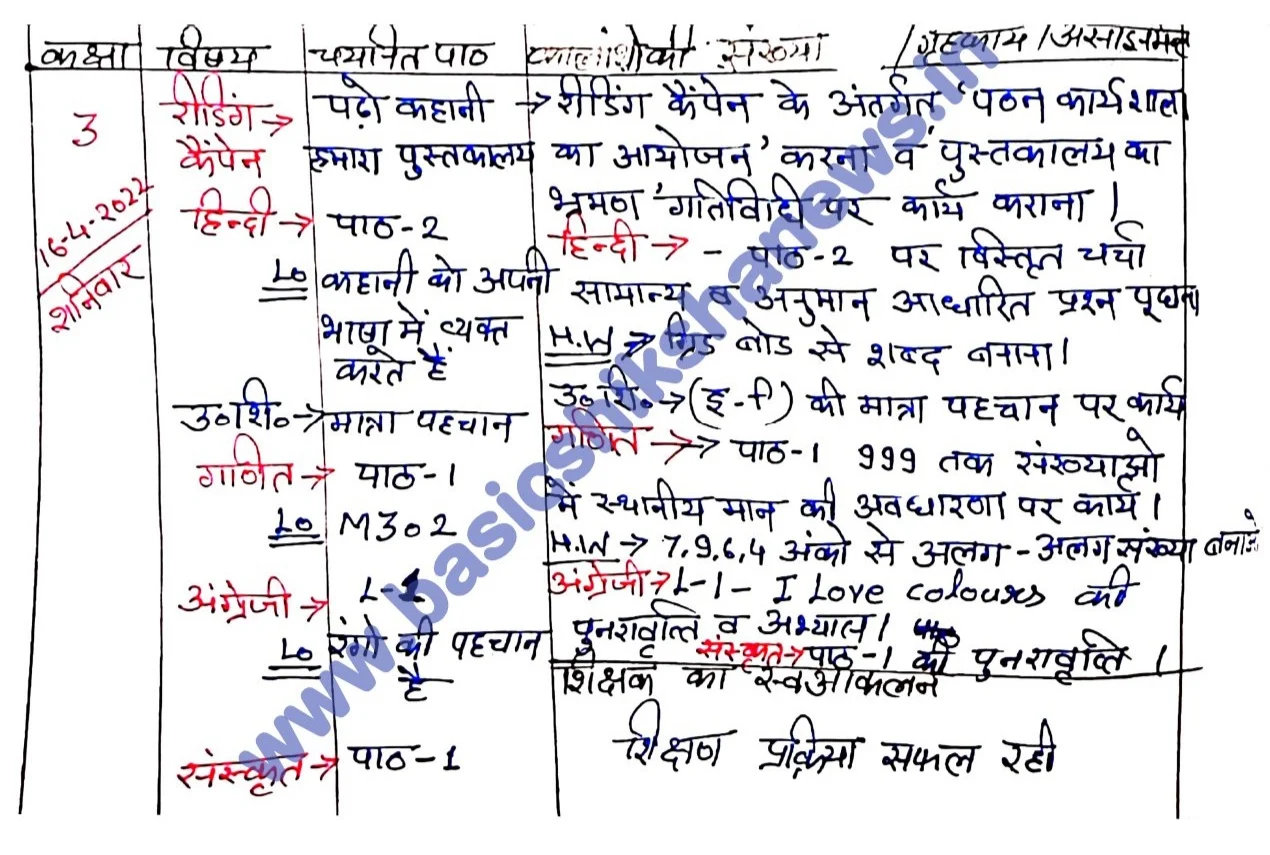 कक्षा विषय चयनित पाठ कालांशो की संख्या /गृहकार्य/असाइनमेंट
3
16-4-2022
शनिवार
रीडिंग → पढ़ो कहानी → रीडिंग कैंपेन के अंतर्गत 'पठन कार्यशाला
कैंपेन हमारा पुस्तकालय का आयोजन' करना व पुस्तकालय का
भ्रमण 'गतिविधि पर कार्य कराना।
हिन्दी → पाठ-2
हिन्दी → - पाठ-2 पर विस्तृत चर्चा
LO कहानी को अपनी सामान्य व अनुमान आधारित प्रश्न पूछना
भाषा में व्यक्त
करते हैं
H.W → ग्रिड बोर्ड से शब्द बनाना।
उ०शि०→ मात्रा पहचान
उ०शि०→(इ-ि) की मात्रा पहचान पर कार्य
गणित → पाठ-1
गणित →→ पाठ-1 999 तक संख्याओ
LO M302
में स्थानीय मान की अवधारणा पर कार्य।
H.W → 7,9,6,4 अंको से अलग-अलग संख्या बनाने
अंग्रेजी → L-1
अंग्रेजी→ L-1- I Love colours की
LO रंगो की पहचान
है
पुनरावृत्ति व अभ्यास।
संस्कृत→पाठ-1 की पुनरावृत्ति।
शिक्षक का स्वआंकलन
संस्कृत → पाठ-1
शिक्षण प्रक्रिया सफल रही
www.basicshikshanews.in